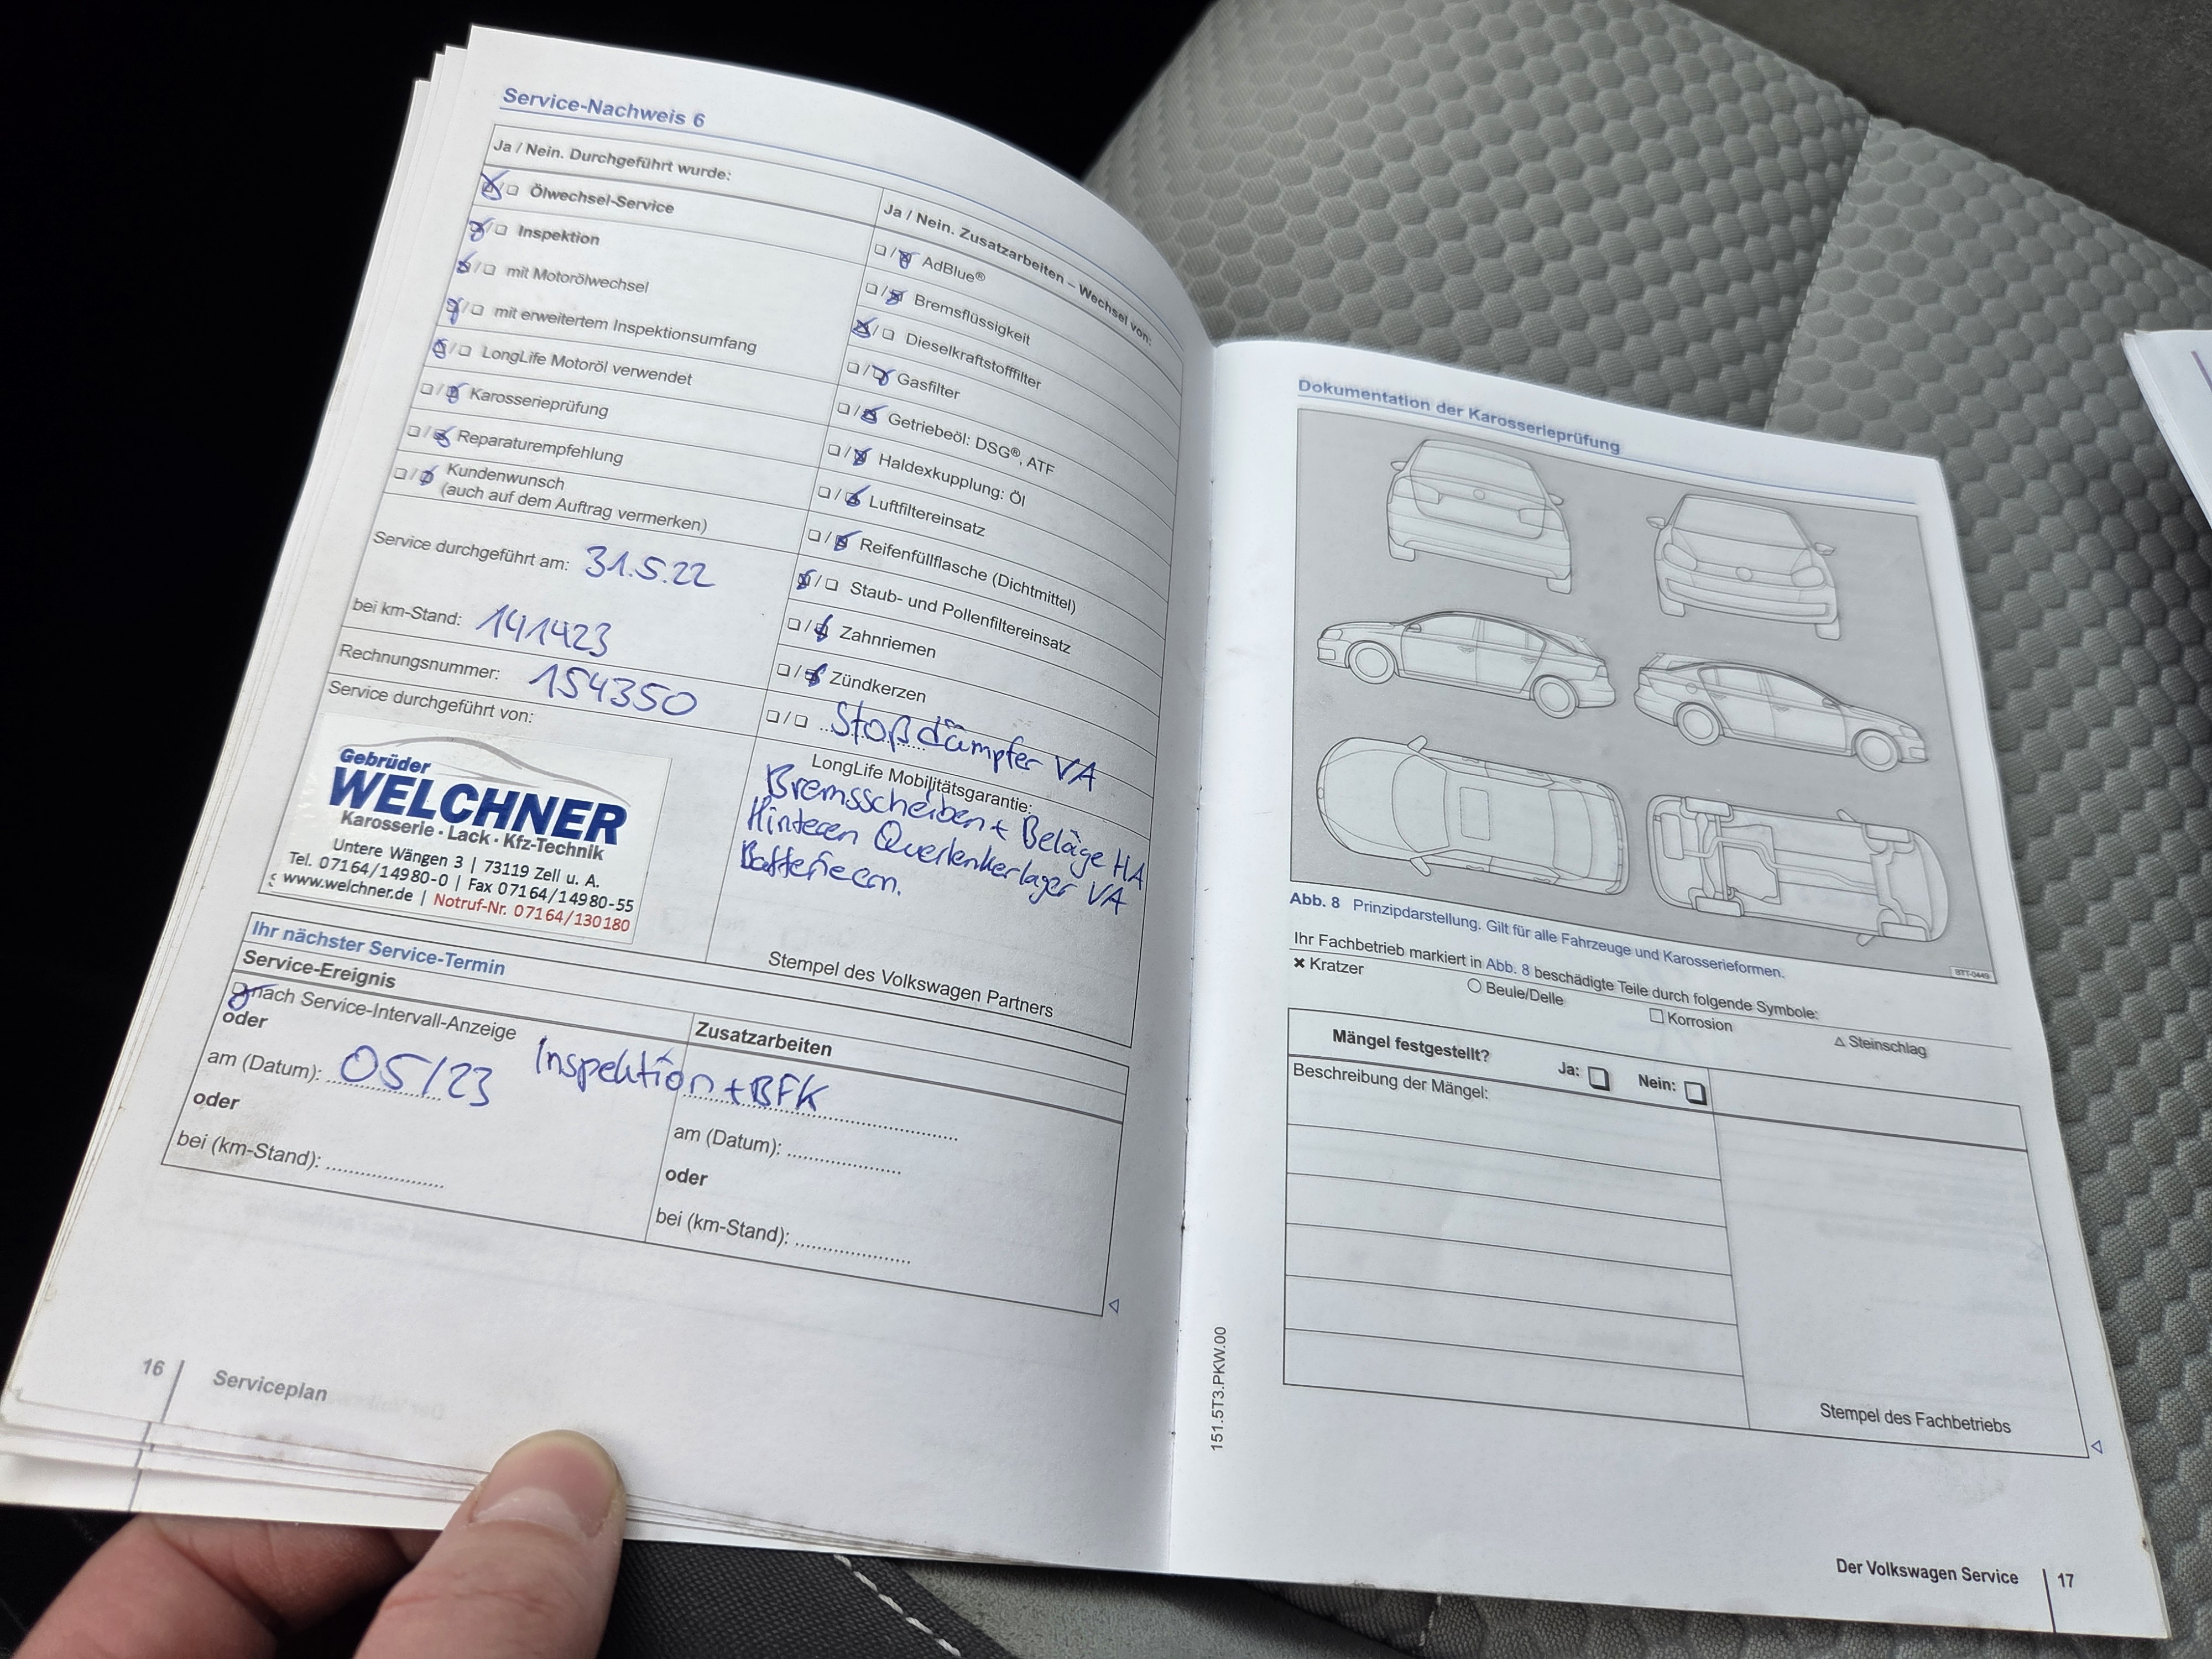 Service-Nachweis 6
Ja / Nein. Durchgeführt wurde:
Ölwechsel-Service
Inspektion
mit Motorölwechsel
mit erweitertem Inspektionsumfang
LongLife Motoröl verwendet
Karosserieprüfung
Reparaturempfehlung
Kundenwunsch
(auch auf dem Auftrag vermerken)
Service durchgeführt am: 31.5.22
bei km-Stand: 141423
Rechnungsnummer: 154350
Service durchgeführt von:
Gebrüder
WELCHNER
Karosserie · Lack · Kfz-Technik
Untere Wängen 3 | 73119 Zell u. A.
Tel. 07164/14980-0 | Fax 07164/14980-55
www.welchner.de | Notruf-Nr. 07164/130180
Ja / Nein. Zusatzarbeiten – Wechsel von:
AdBlue®
Bremsflüssigkeit
Dieselkraftstofffilter
Gasfilter
Getriebeöl: DSG®, ATF
Haldexkupplung: Öl
Luftfiltereinsatz
Reifenfüllflasche (Dichtmittel)
Staub- und Pollenfiltereinsatz
Zahnriemen
Zündkerzen
Stoßdämpfer VA
LongLife Mobilitätsgarantie:
Bremsscheiben + Beläge HA
Hinteren Querlenkerlager VA
Stempel des Volkswagen Partners
Ihr nächster Service-Termin
Service-Ereignis
nach Service-Intervall-Anzeige
oder
am (Datum): 05/23 Inspektion + BFK
oder
bei (km-Stand):
Zusatzarbeiten
am (Datum):
oder
bei (km-Stand):
16 Serviceplan
Dokumentation der Karosserieprüfung
BTT-0449
Abb. 8 Prinzipdarstellung. Gilt für alle Fahrzeuge und Karosserieformen.
Ihr Fachbetrieb markiert in Abb. 8 beschädigte Teile durch folgende Symbole:
× Kratzer ○ Beule/Delle □ Korrosion △ Steinschlag
Mängel festgestellt? Ja: Nein:
Beschreibung der Mängel:
Stempel des Fachbetriebs
151.5T3.PKW.00
Der Volkswagen Service 17